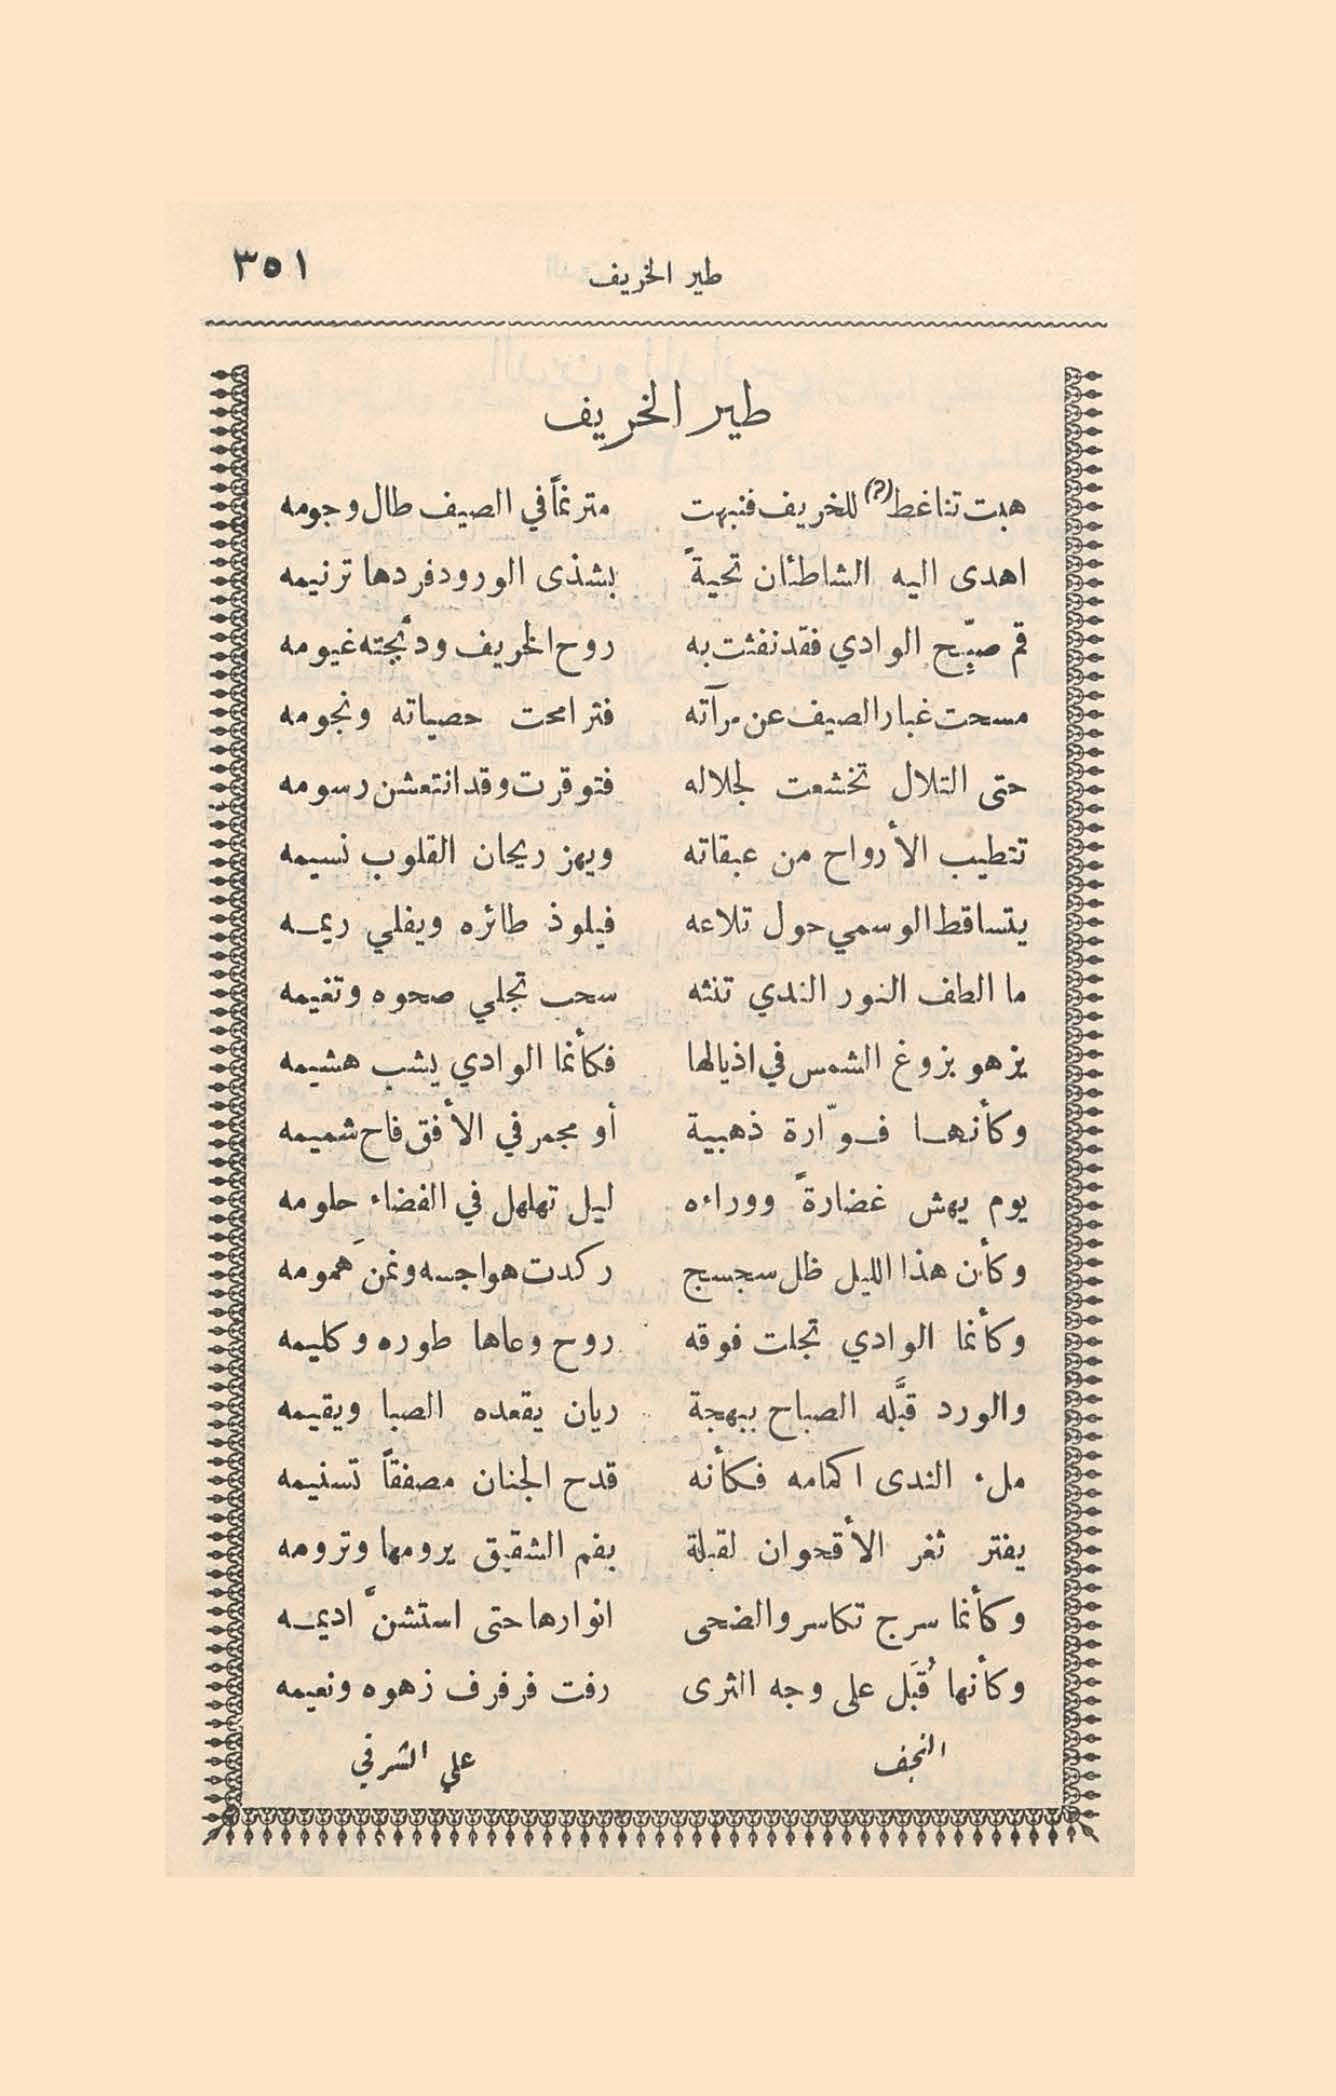 طير الخريف ٣٥١
طير الخريف
هبت تناغط(؟) للخريف فنبهت مترنماً في الصيف طال وجومه
اهدى اليه الشاطئان تحيةً بشذى الورود فردها ترنيمه
قم صبّح الوادي فقد نفثت به روح الخريف ودبجته غيومه
مسحت غبار الصيف عن مرآته فترامحت حصياته ونجومه
حتى التلال تخشعت لجلاله فتوقرت وقد انتعشن رسومه
تتطيب الأرواح من عبقاته ويهز ريحان القلوب نسيمه
يتساقط الوسمي حول تلاعه فيلوذ طائره ويفلي ريمـه
ما الطف النور الندي تنثه سحب تجلي صحوه وتغيمه
يزهو بزوغ الشمس في اذيالها فكأنما الوادي يشب هشيمه
وكأنهـا فـوّارة ذهبية أو مجمر في الأفق فاح شميمه
يوم يهش غضارةً ووراءه ليل تهلهل في الفضاء حلومه
وكأن هذا الليل ظل سجسج ركدت هواجسه ونمنَ همومه
وكأنما الوادي تجلت فوقه روح وعاها طوره وكليمه
والورد قبَّله الصباح ببهجة ريان يقعده الصبا ويقيمه
ملء الندى اكمامه فكأنه قدح الجنان مصفقاً تسنيمه
يفتر ثغر الأقحوان لقبلة بفم الشقيق يرومها وترومه
وكأنما سرج تكاسر والضحى انوارها حتى استشنَّ اديمـه
وكأنها قُبَل على وجه الثرى رفت فرفرف زهوه ونعيمه
النجف علي الشرقي